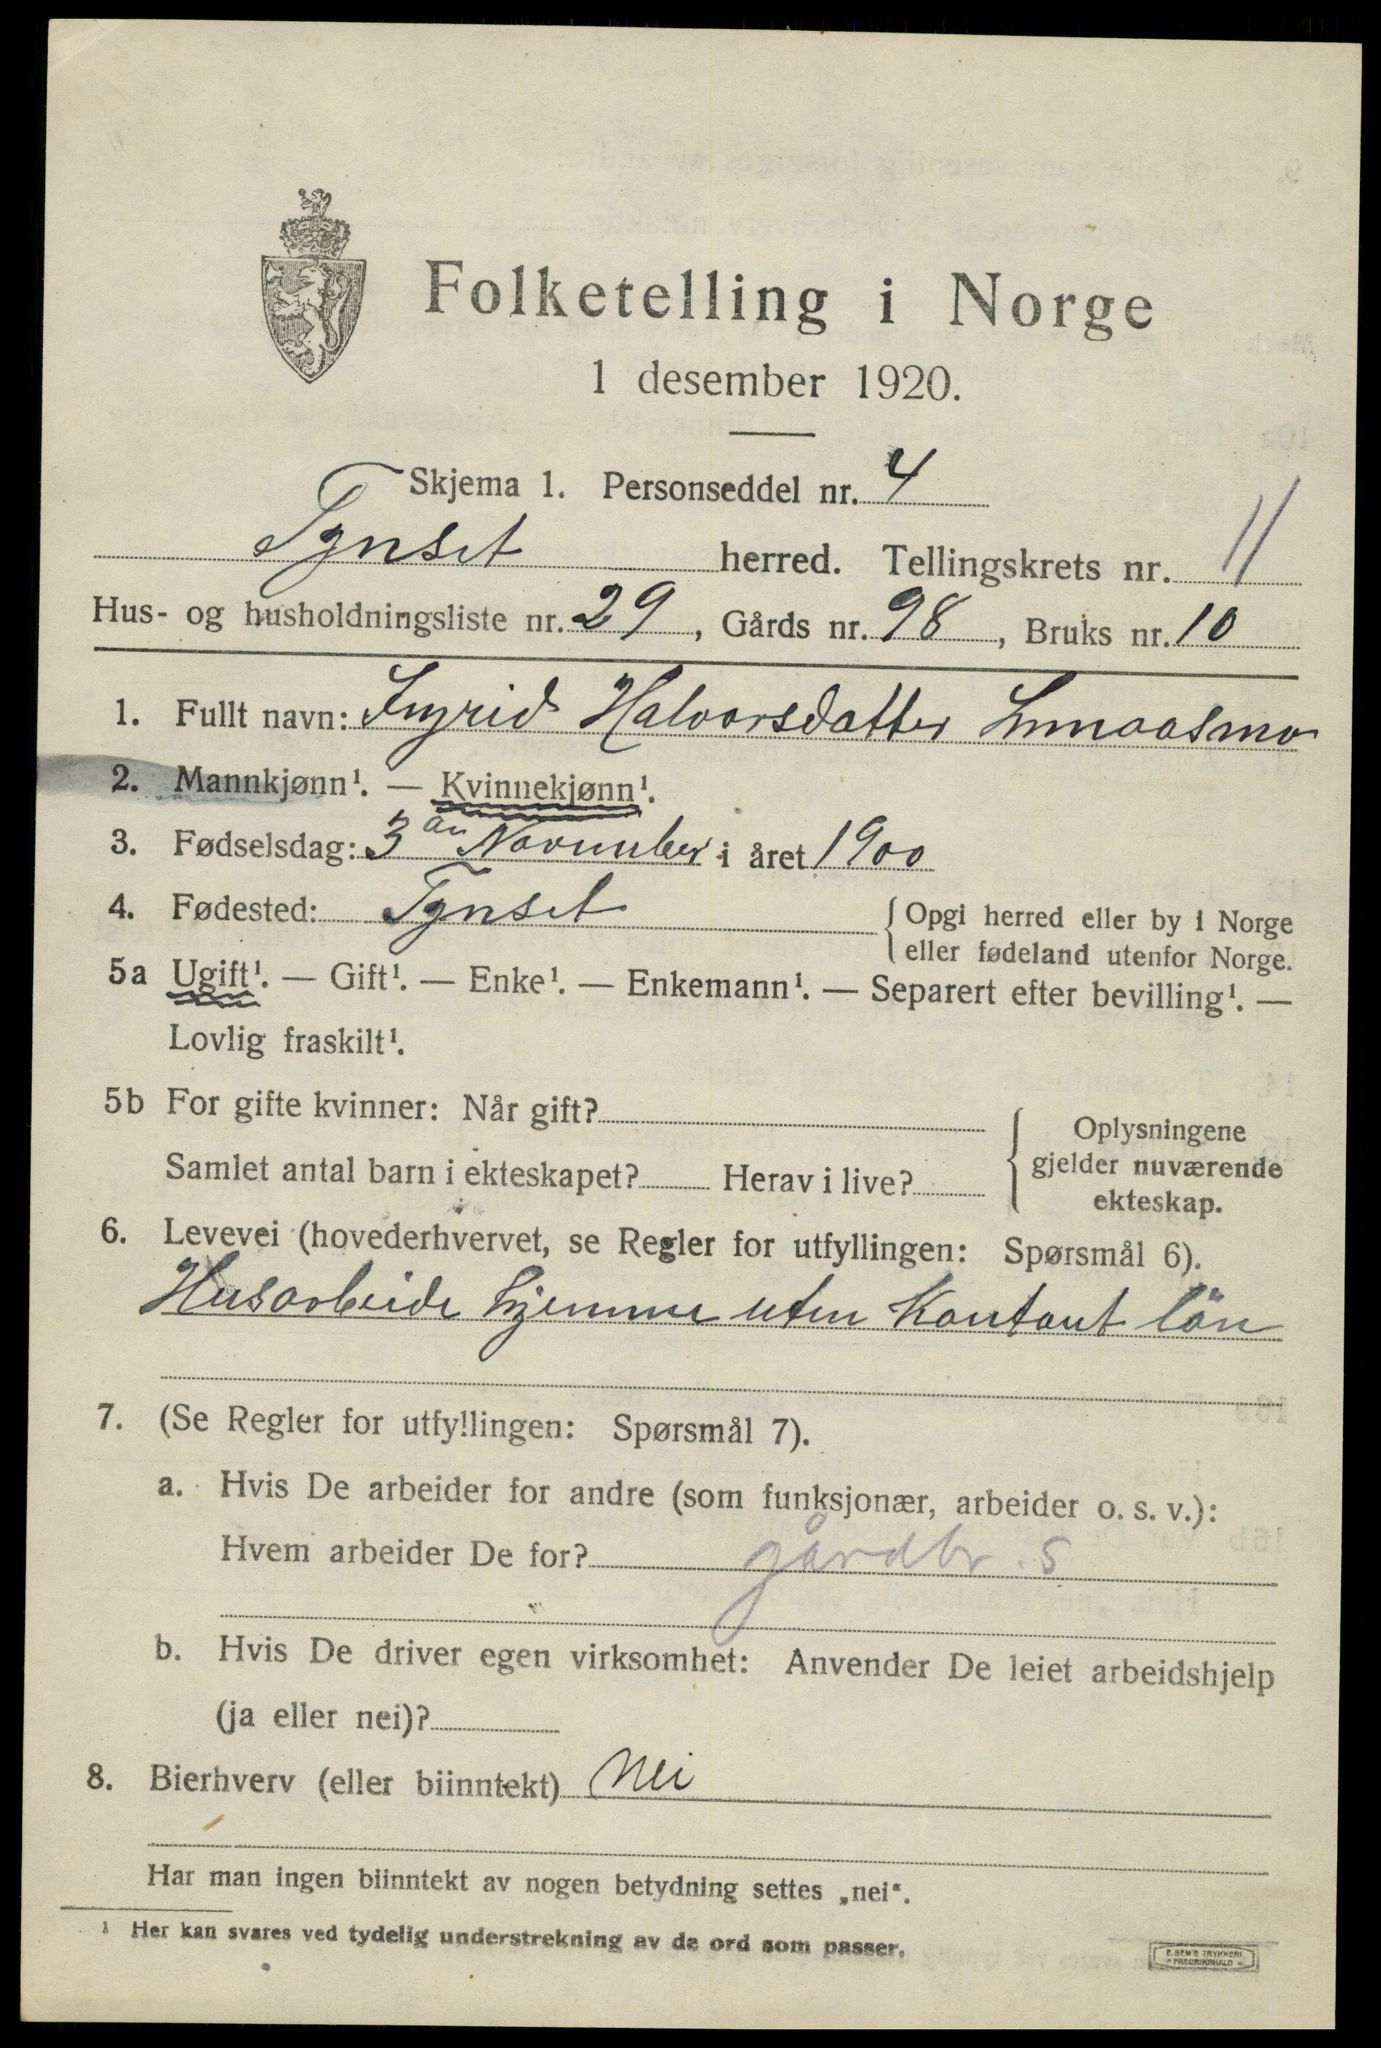 Folketelling i Norge
1 desember 1920.
Skjema 1. Personseddel nr. 4
Tynset herred. Tellingskrets nr. 11
Hus- og husholdningsliste nr. 29, Gårds nr. 98, Bruks nr. 10
1. Fullt navn: Ingrid Halvorsdatter
2. Mannkjønn¹. — Kvinnekjønn¹.
3. Fødselsdag: 3 November i året 1900
4. Fødested: Tynset {Opgi herred eller by i Norge
eller fødeland utenfor Norge.
5a Ugift¹. — Gift¹. — Enke¹. — Enkemann¹. — Separert efter bevilling¹. —
Lovlig fraskilt¹.
5b For gifte kvinner: Når gift?
Samlet antal barn i ekteskapet? Herav i live?
{Oplysningene
gjelder nuværende
ekteskap.
6. Levevei (hovederhvervet, se Regler for utfyllingen: Spørsmål 6).
Husarbeide hjemme uten Kontant lön
7. (Se Regler for utfyllingen: Spørsmål 7).
a. Hvis De arbeider for andre (som funksjonær, arbeider o. s. v.):
Hvem arbeider De for? gårdbr. s
b. Hvis De driver egen virksomhet: Anvender De leiet arbeidshjelp
(ja eller nei)?
8. Bierhverv (eller biinntekt) Nei
Har man ingen biinntekt av nogen betydning settes „nei“.
¹ Her kan svares ved tydelig understrekning av de ord som passer.
E. SEM'S TRYKKERI
FREDRIKSHALD